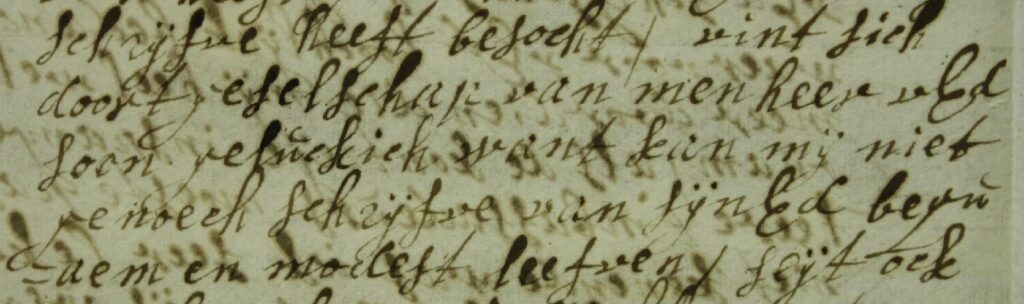 schrijfve heeft besocht / vint sich
doort geselschap van menheer vEd
soon geluckich want kan mij niet
genoech schrijfve van sijnEd beqŭ
aem en modest leefven / seijt ock